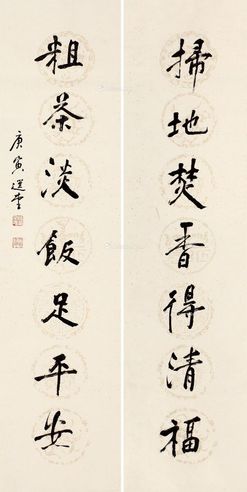 掃地焚香得清福
粗茶淡飯足平安
庚寅選堂